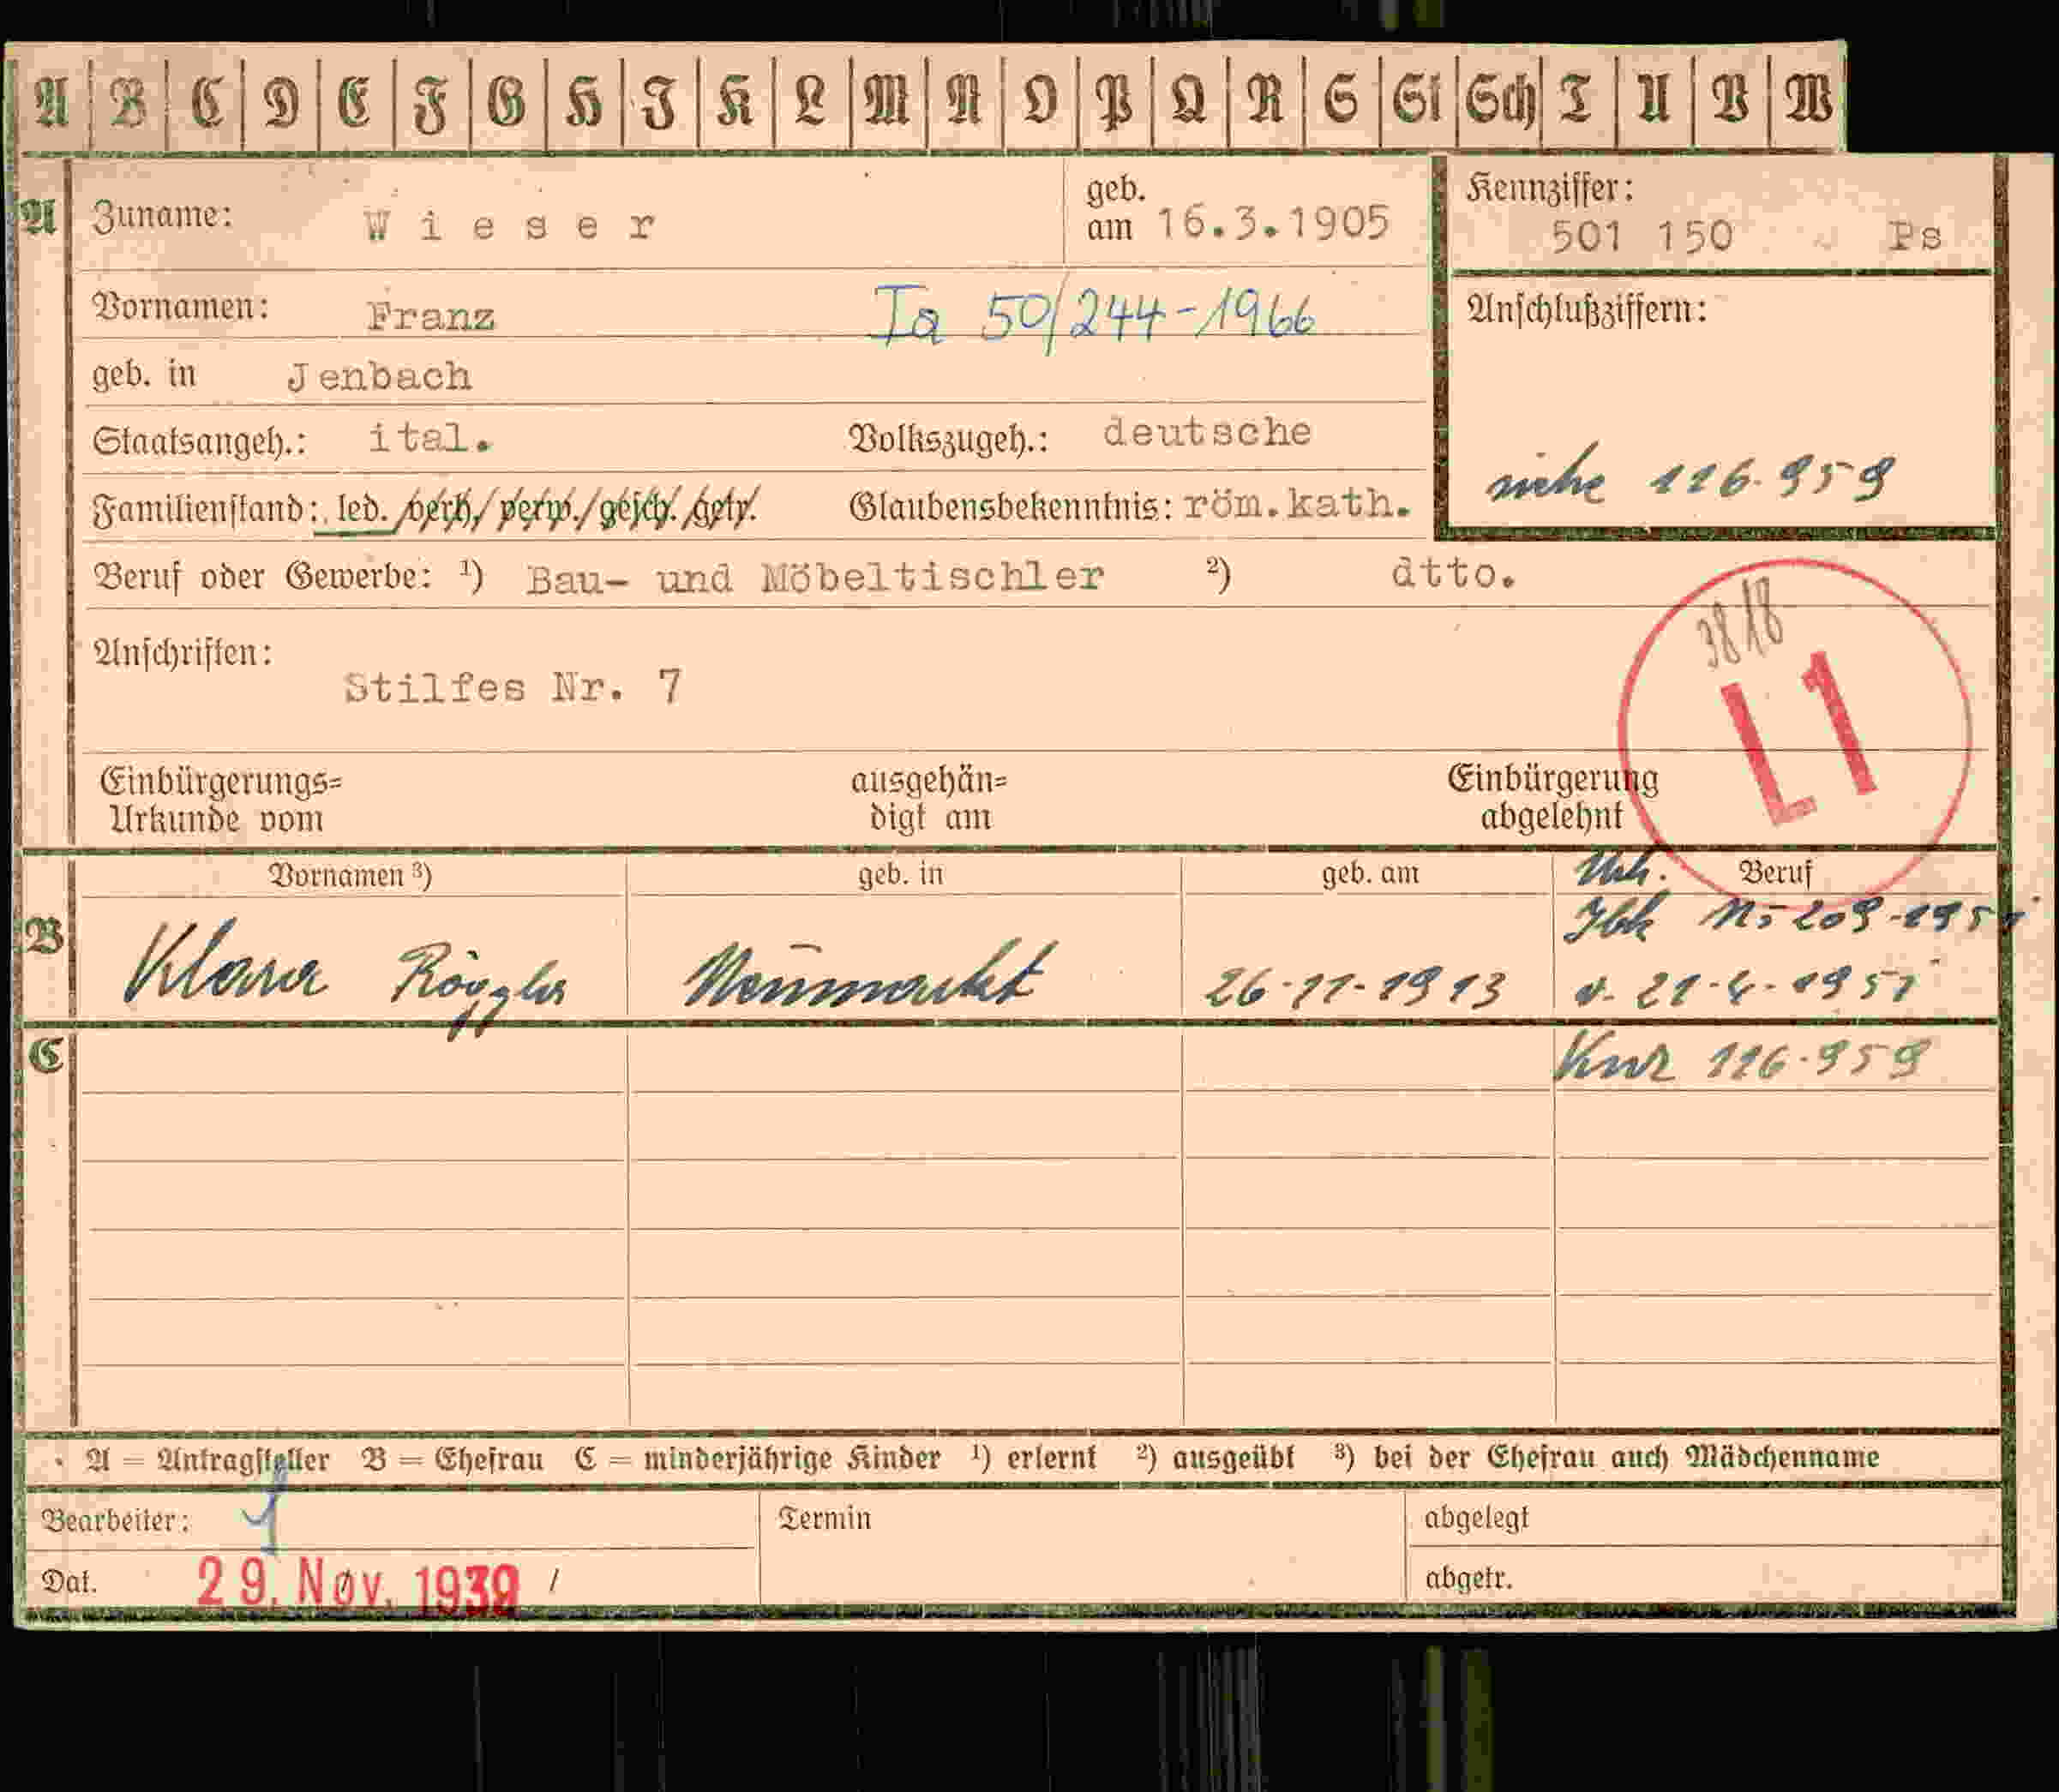 A B C D E F G H J K L M N O P Q R S St Sch T U V W
A Zuname: Wieser geb. am 16.3.1905 Kennziffer: 501 150 Ps
Vornamen: Franz Ia 50/244-1966 Anschlußziffern:
geb. in Jenbach
Staatsangeh.: ital. Volkszugeh.: deutsche
siehe 116.959
Familienstand: led./verh./verw./gesch./getr. Glaubensbekenntnis: röm.kath.
Beruf oder Gewerbe: 1) Bau- und Möbeltischler 2) dtto.
3818
L1
Anschriften:
Stilfes Nr. 7
Einbürgerungs= ausgehän= Einbürgerung
Urkunde vom digt am abgelehnt
Vornamen 3) geb. in geb. am Urk. Beruf
Ibk
B Klara Neumarkt 26-11-1913 v. 21-4-1951
C Knr 116.959
A = Antragsteller B = Ehefrau C = minderjährige Kinder 1) erlernt 2) ausgeübt 3) bei der Ehefrau auch Mädchenname
Bearbeiter: Termin abgelegt
Dat. 29. Nov. 1939 / abgetr.